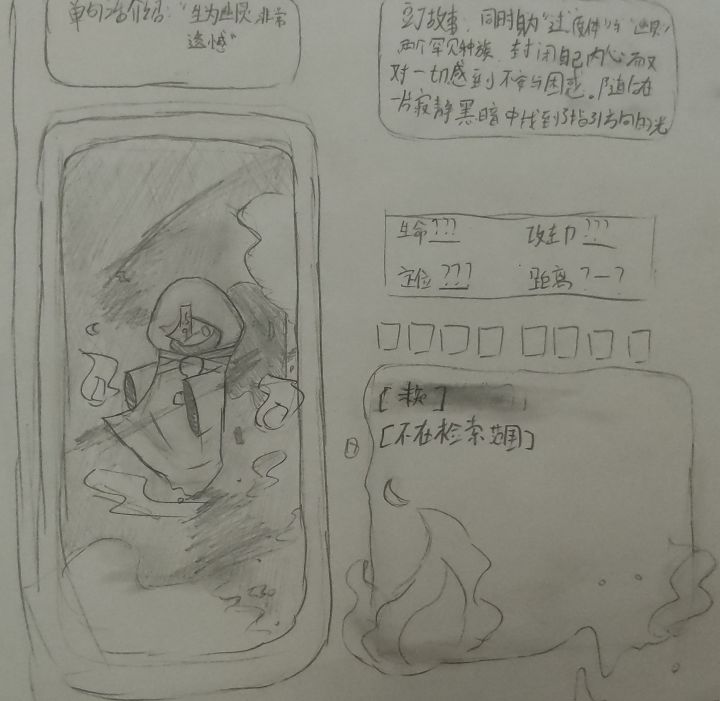 单句话介绍:"生为幽灵,非常
遗憾"
故事:同时身为"过度体"与"幽灵"
两个罕见种族,封闭自己内心而又
对一切感到不安与困惑。
一片寂静黑暗中找到指引方向的光
生命???
攻击力???
定位???
距离?一?
[
]
[不在检索范围]